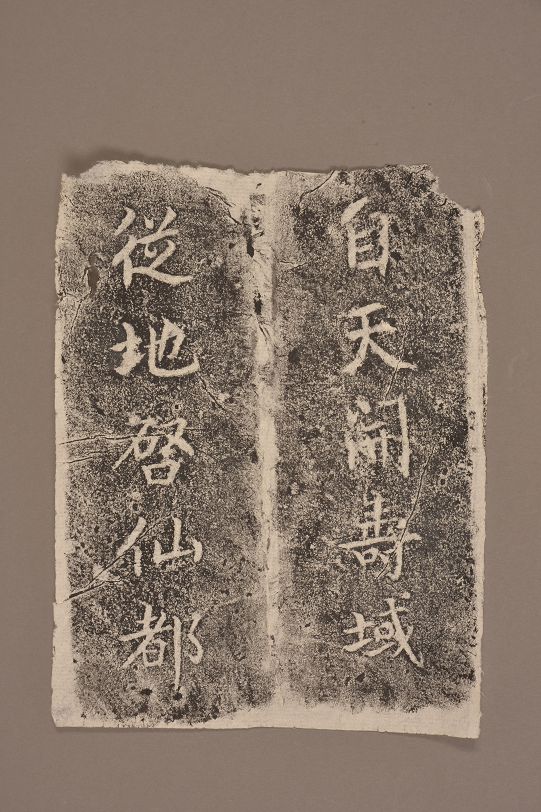 自天開壽域
從地啓仙都